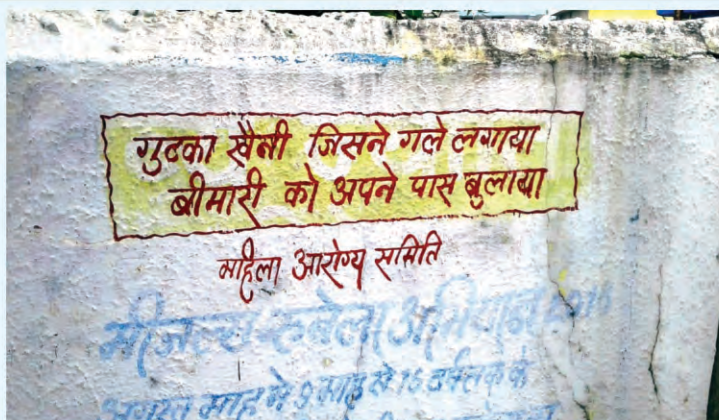 गुटका खैनी जिसने गले लगाया
बीमारी को अपने पास बुलाया
महिला आरोग्य समिति
मीजल्स रूबेला अभियान
अगस्त माह में 9 माह से 15 वर्ष तक के